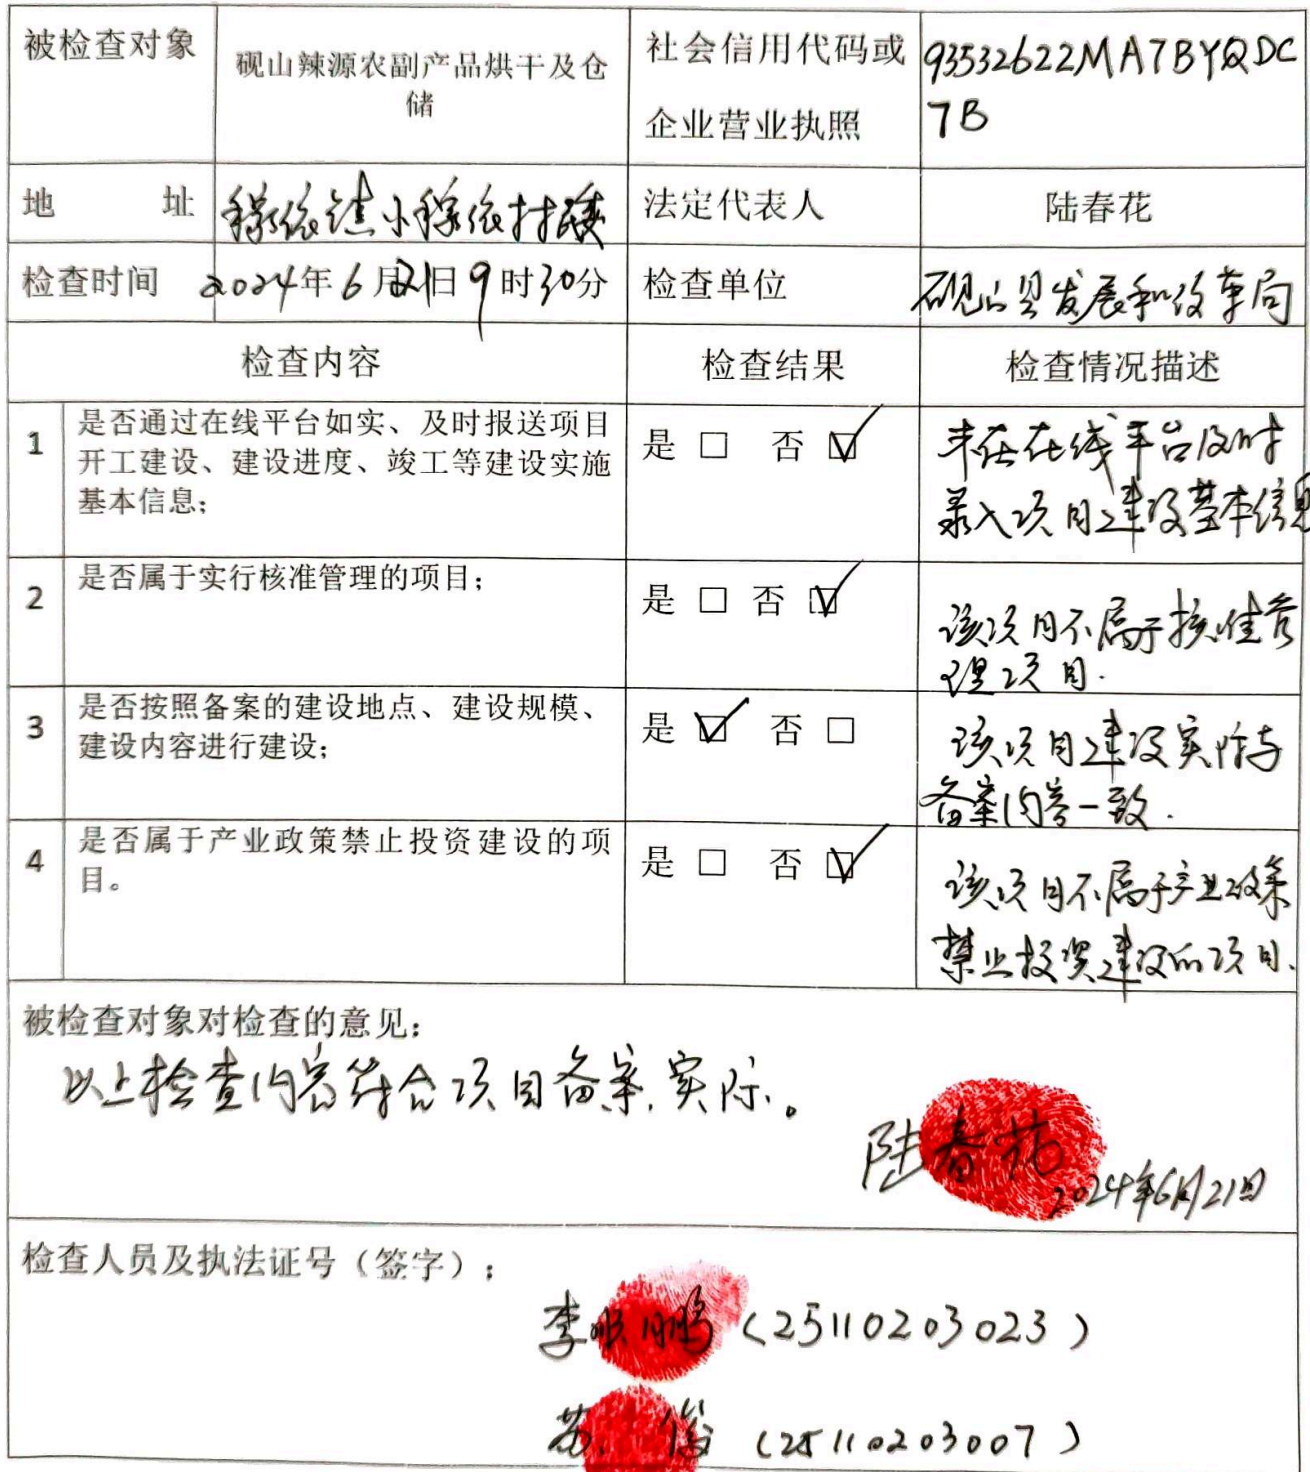 被检查对象
砚山辣源农副产品烘干及仓
储
社会信用代码或
企业营业执照
93532622MA7BYQDC
7B
地 址
稼依镇小稼依村
法定代表人
陆春花
检查时间
2024年6月21日9时30分
检查单位
砚山县发展和改革局
检查内容
检查结果
检查情况描述
1
是否通过在线平台如实、及时报送项目
开工建设、建设进度、竣工等建设实施
基本信息;
是 □ 否 ☑
未在在线平台及时
录入项目建设基本信息
2
是否属于实行核准管理的项目;
是 □ 否 ☑
该项目不属于核准管
理项目.
3
是否按照备案的建设地点、建设规模、
建设内容进行建设;
是 ☑ 否 □
该项目建设实际与
备案内容一致.
4
是否属于产业政策禁止投资建设的项
目。
是 □ 否 ☑
该项目不属于产业政策
禁止投资建设的项目.
被检查对象对检查的意见:
以上检查内容符合项目备案实际。
陆春花
2024年6月21日
检查人员及执法证号（签字）:
李 鹏（25110203023）
俊（25110203007）